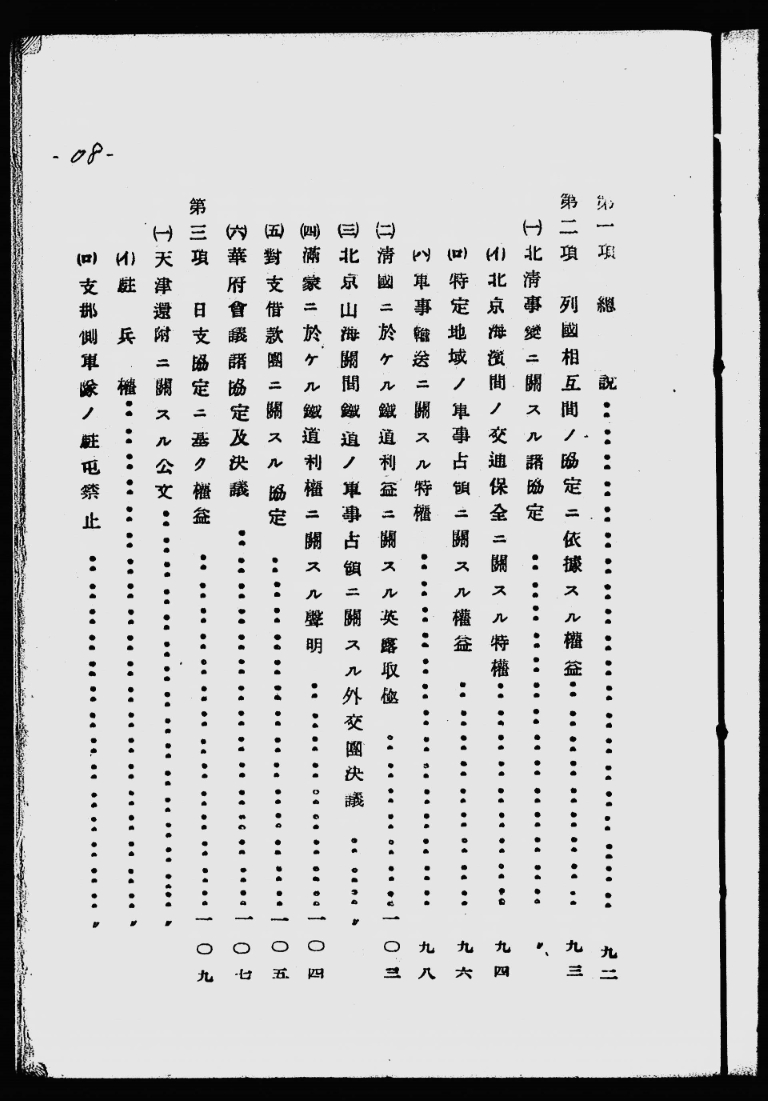 -08-
第一項 總 說……………………九二
第二項 列國相互間ノ協定ニ依據スル權益……………………九三
㈠北淸事變ニ關スル諸協定……………………〃
(イ)北京海濱間ノ交通保全ニ關スル特權……………………九四
(ロ)特定地域ノ軍事占領ニ關スル權益……………………九六
(ハ)軍事輸送ニ關スル特權……………………九八
㈡淸國ニ於ケル鐵道利益ニ關スル英露取極……………………一〇三
㈢北京山海關間鐵道ノ軍事占領ニ關スル外交團決議……………………〃
㈣滿蒙ニ於ケル鐵道利權ニ關スル聲明……………………一〇四
㈤對支借款團ニ關スル協定……………………一〇五
㈥華府會議諸協定及決議……………………一〇七
第三項 日支協定ニ基ク權益……………………一〇九
㈠天津還附ニ關スル公文……………………〃
(イ)駐 兵 權……………………〃
(ロ)支那側軍隊ノ駐屯禁止……………………〃